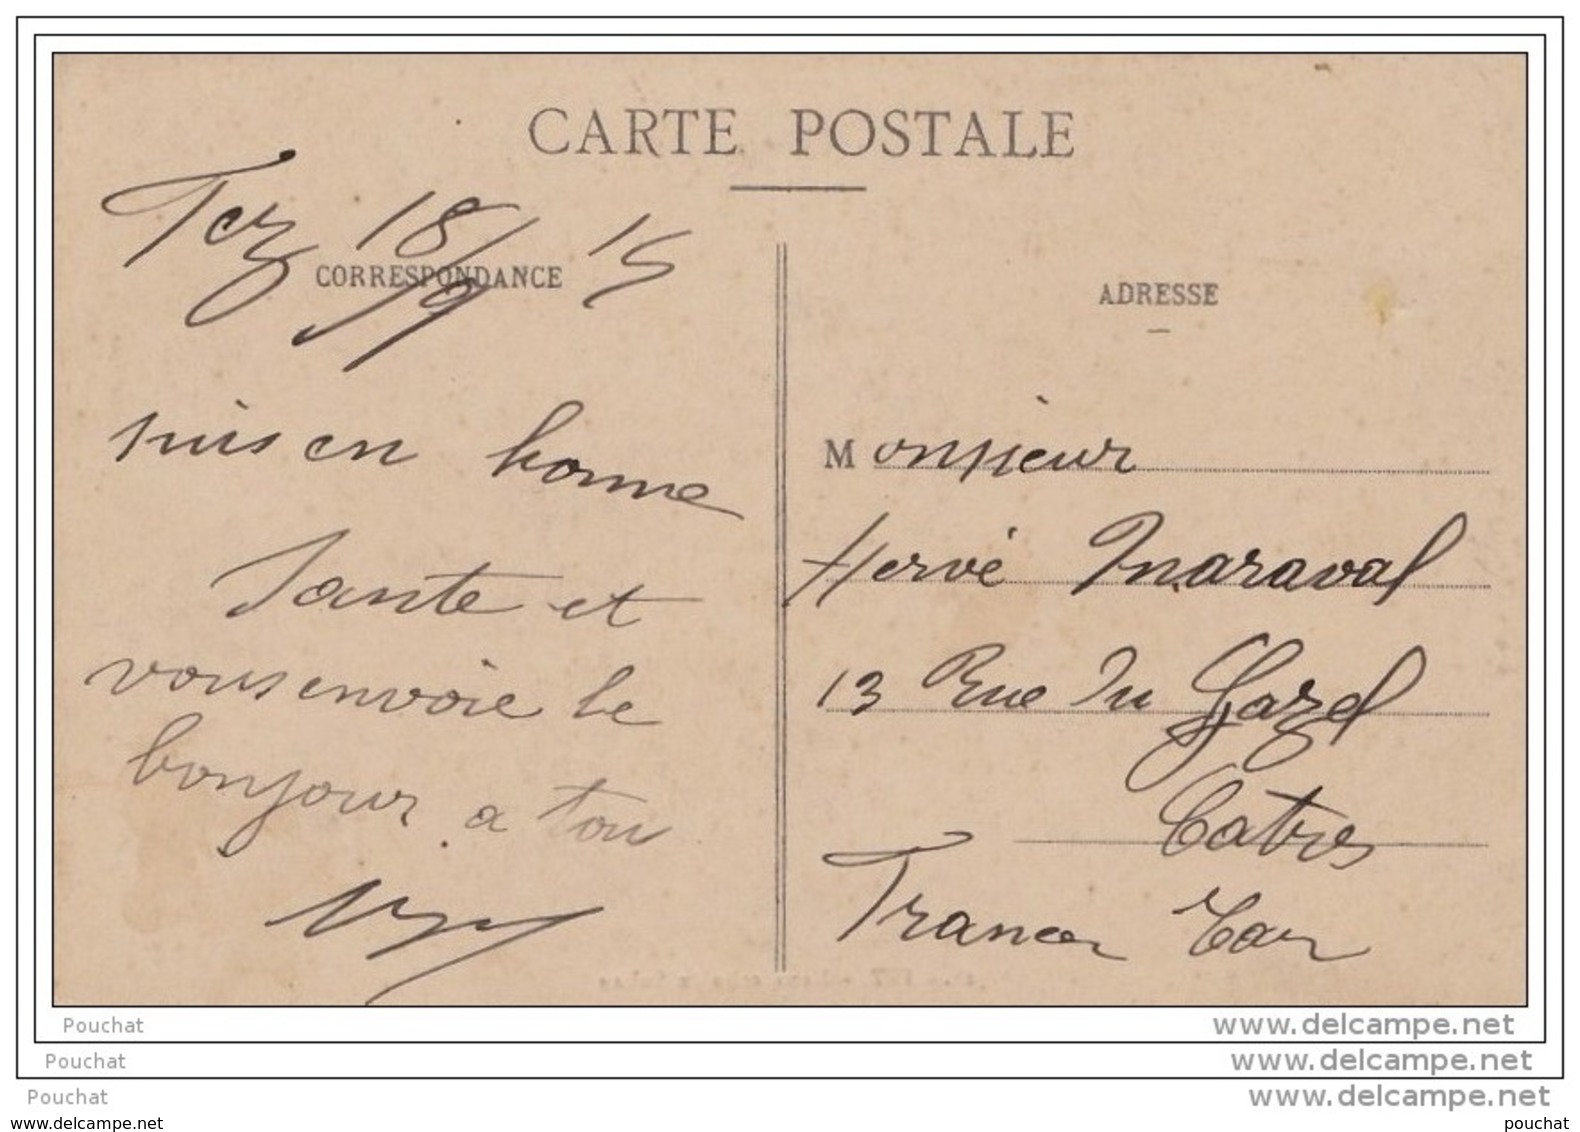 CARTE POSTALE
Fez 18/9 15
CORRESPONDANCE
suis en bonne
sante et
vous envoie le
bonjour a tou
ADRESSE
Monsieur
Hervé Maraval
13 Rue Du Gazel
Catres
France Tarn
Pouchat
www.delcampe.net
Pouchat
www.delcampe.net
Pouchat
www.delcampe.net
www.delcampe.net
pouchat